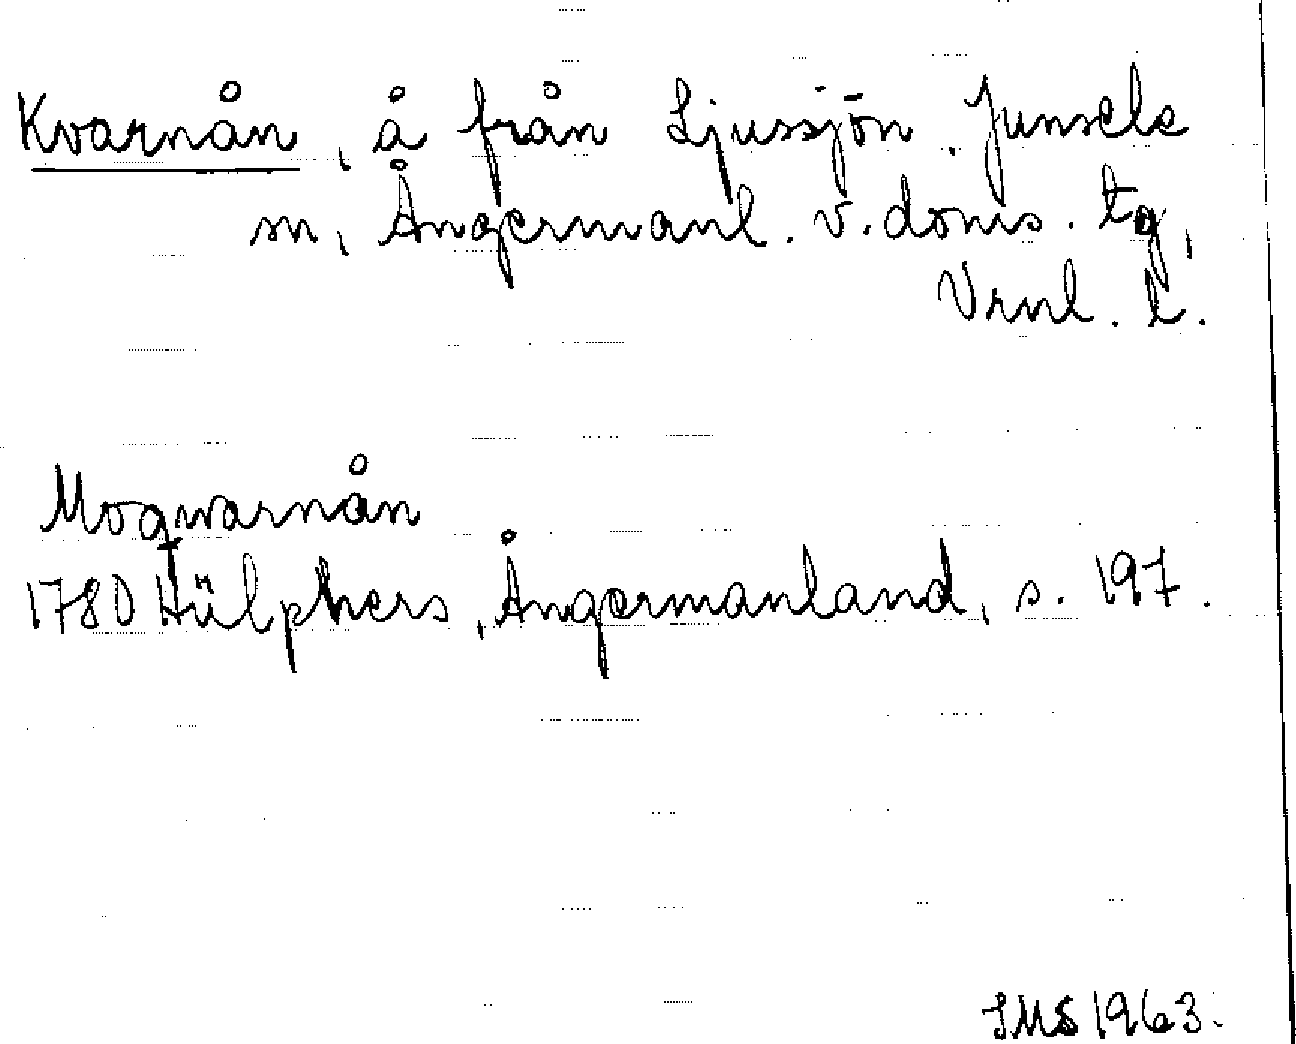 Kvarnån, å från Ljussjön. Junsele
sn, Ångermanl. v. doms. tg,
Vrnl. l.
Moqwarnån
1780 Hülphers, Ångermanland, s. 197.
SMS 1963.